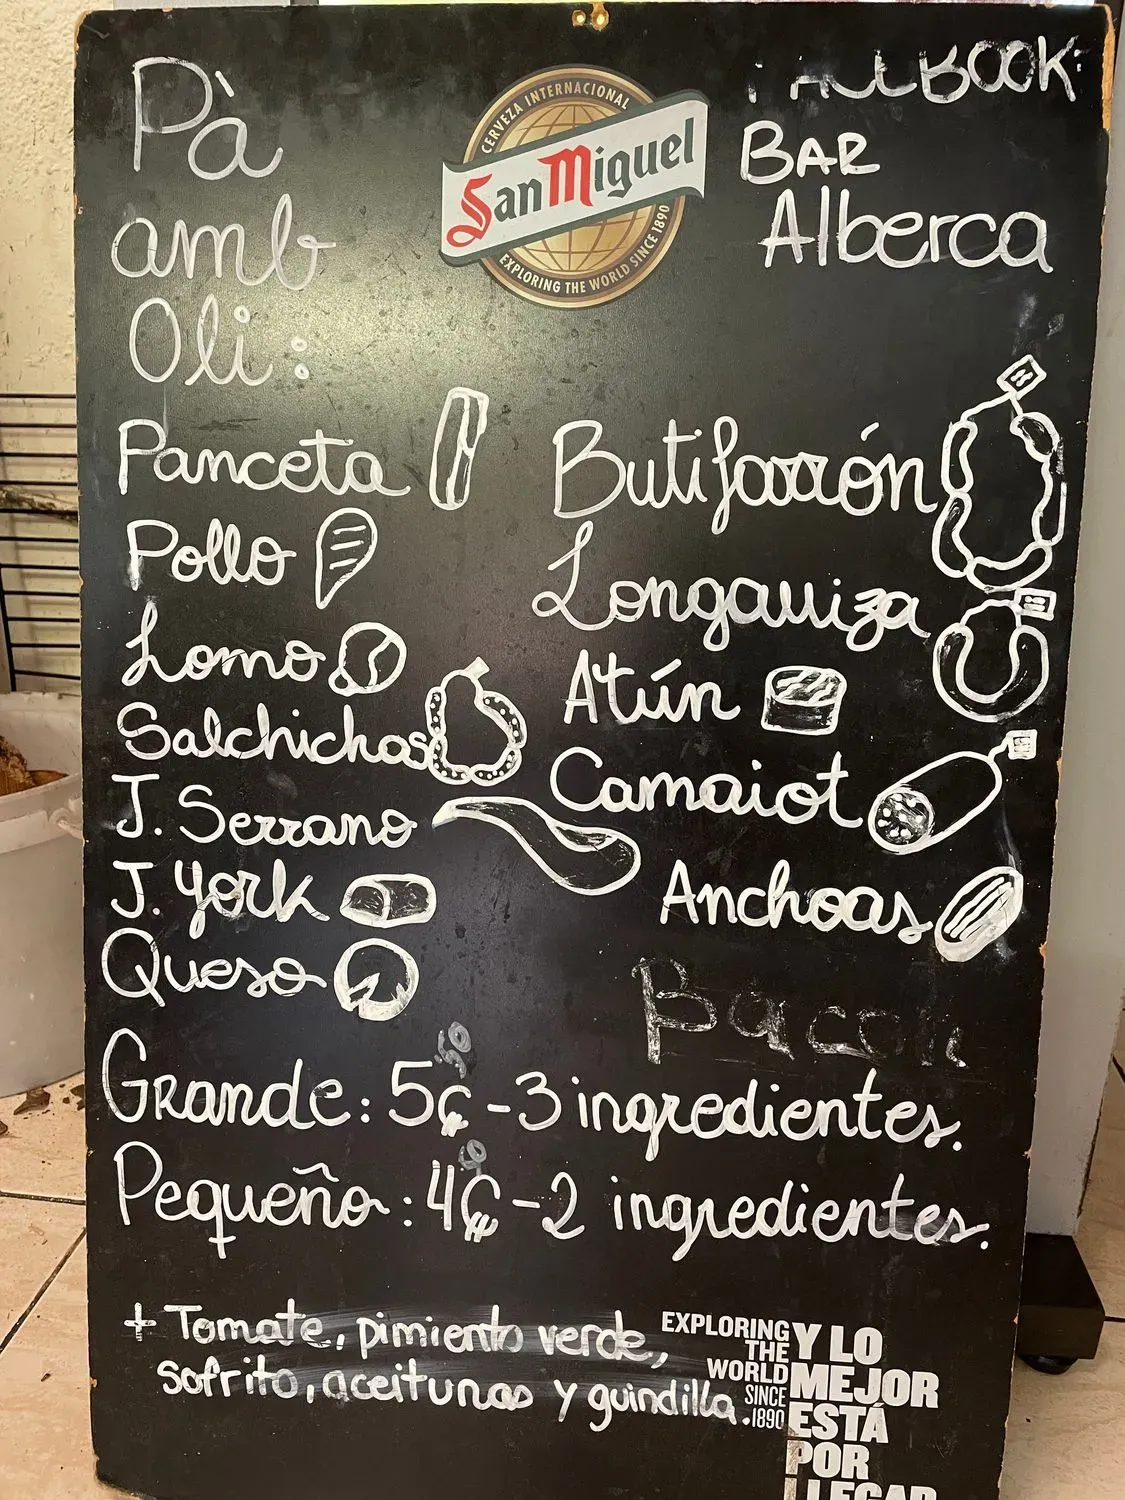 Pà
amb
Oli :
CERVEZA INTERNACIONAL
San Miguel
EXPLORING THE WORLD SINCE 1890
BAR
Alberca
Panceta
Pollo
Lomo
Salchichas
J. Serrano
J. York
Queso
Butifarrón
Longauiza
Atún
Camaiot
Anchoas
Bacon
Grande: 5€ - 3 ingredientes.
Pequeño: 4€ - 2 ingredientes.
+ Tomate, pimiento verde,
sofrito, aceitunas y guindilla.
EXPLORING
THE
WORLD
SINCE
1890
Y LO
MEJOR
ESTÁ
POR
LLEGAR